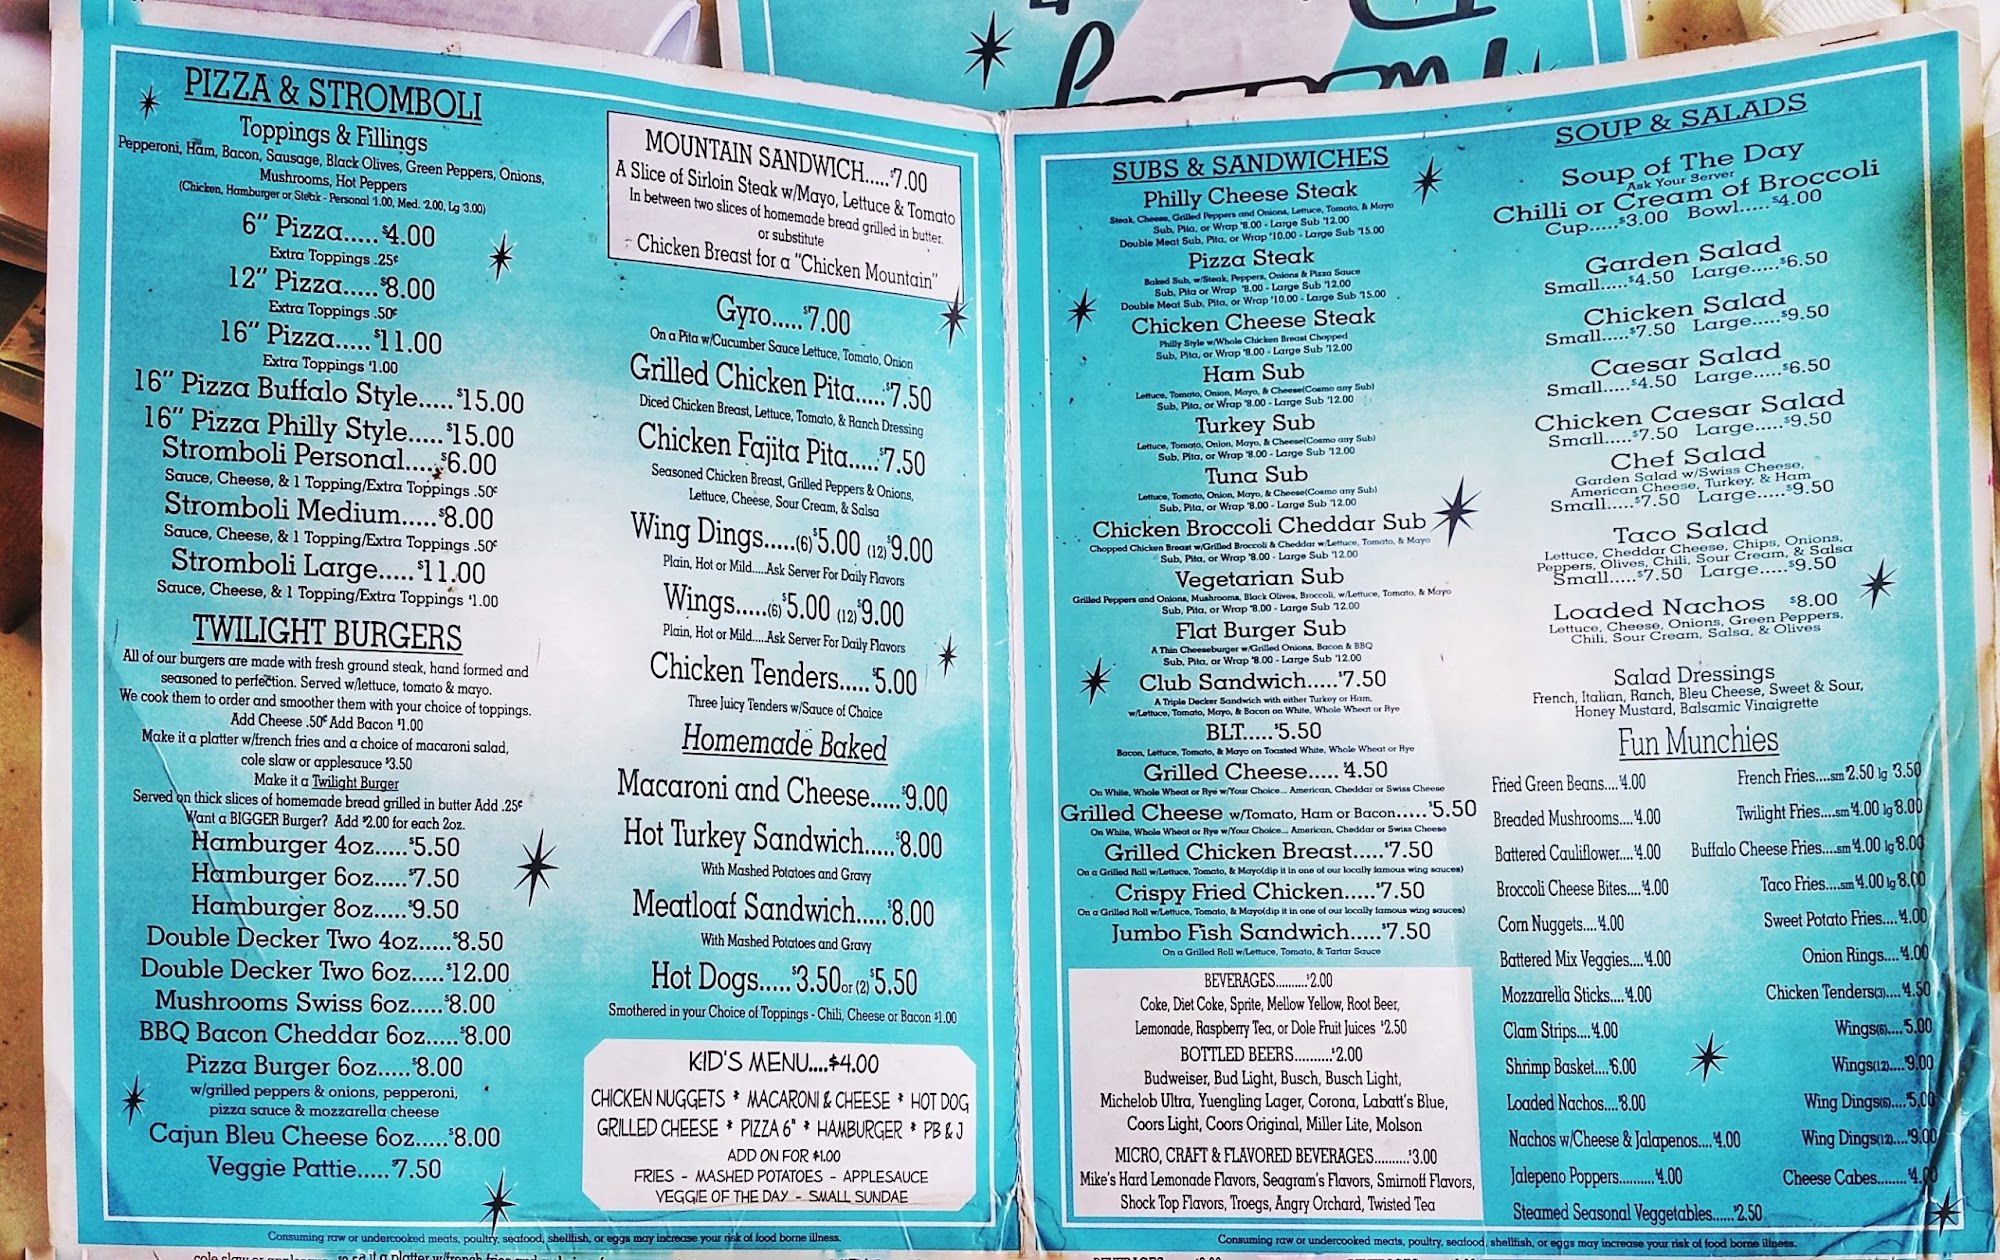 PIZZA & STROMBOLI
Toppings & Fillings
Pepperoni, Ham, Bacon, Sausage, Black Olives, Green Peppers, Onions,
Mushrooms, Hot Peppers
(Chicken, Hamburger or Steak - Personal $1.00, Med. $2.00, Lg $3.00)
6" Pizza.....$4.00
Extra Toppings .25¢
12" Pizza.....$8.00
Extra Toppings .50¢
16" Pizza.....$11.00
Extra Toppings $1.00
16" Pizza Buffalo Style.....$15.00
16" Pizza Philly Style.....$15.00
Stromboli Personal.....$6.00
Sauce, Cheese, & 1 Topping/Extra Toppings .50¢
Stromboli Medium.....$8.00
Sauce, Cheese, & 1 Topping/Extra Toppings .50¢
Stromboli Large.....$11.00
Sauce, Cheese, & 1 Topping/Extra Toppings $1.00
TWILIGHT BURGERS
All of our burgers are made with fresh ground steak, hand formed and
seasoned to perfection. Served w/lettuce, tomato & mayo.
We cook them to order and smoother them with your choice of toppings.
Add Cheese .50¢ Add Bacon $1.00
Make it a platter w/french fries and a choice of macaroni salad,
cole slaw or applesauce $3.50
Make it a Twilight Burger
Served on thick slices of homemade bread grilled in butter Add .25¢
Want a BIGGER Burger? Add $2.00 for each 2oz.
Hamburger 4oz.....$5.50
Hamburger 6oz.....$7.50
Hamburger 8oz.....$9.50
Double Decker Two 4oz.....$8.50
Double Decker Two 6oz.....$12.00
Mushrooms Swiss 6oz.....$8.00
BBQ Bacon Cheddar 6oz.....$8.00
Pizza Burger 6oz.....$8.00
w/grilled peppers & onions, pepperoni,
pizza sauce & mozzarella cheese
Cajun Bleu Cheese 6oz.....$8.00
Veggie Pattie.....$7.50
MOUNTAIN SANDWICH.....$7.00
A Slice of Sirloin Steak w/Mayo, Lettuce & Tomato
In between two slices of homemade bread grilled in butter.
or substitute
Chicken Breast for a "Chicken Mountain"
Gyro.....$7.00
On a Pita w/Cucumber Sauce Lettuce, Tomato, Onion
Grilled Chicken Pita.....$7.50
Diced Chicken Breast, Lettuce, Tomato, & Ranch Dressing
Chicken Fajita Pita.....$7.50
Seasoned Chicken Breast, Grilled Peppers & Onions,
Lettuce, Cheese, Sour Cream, & Salsa
Wing Dings.....(6)$5.00 (12)$9.00
Plain, Hot or Mild.....Ask Server For Daily Flavors
Wings.....(6)$5.00 (12)$9.00
Plain, Hot or Mild.....Ask Server For Daily Flavors
Chicken Tenders.....$5.00
Three Juicy Tenders w/Sauce of Choice
Homemade Baked
Macaroni and Cheese.....$9.00
Hot Turkey Sandwich.....$8.00
With Mashed Potatoes and Gravy
Meatloaf Sandwich.....$8.00
With Mashed Potatoes and Gravy
Hot Dogs.....$3.50 or (2) $5.50
Smothered in your Choice of Toppings - Chili, Cheese or Bacon $1.00
KID'S MENU....$4.00
CHICKEN NUGGETS * MACARONI & CHEESE * HOT DOG
GRILLED CHEESE * PIZZA 6" * HAMBURGER * PB & J
ADD ON FOR $1.00
FRIES - MASHED POTATOES - APPLESAUCE
VEGGIE OF THE DAY - SMALL SUNDAE
Consuming raw or undercooked meats, poultry, seafood, shellfish, or eggs may increase your risk of food borne illness.
SUBS & SANDWICHES
Philly Cheese Steak
Steak, Cheese, Grilled Peppers and Onions, Lettuce, Tomato, & Mayo
Sub, Pita, or Wrap $8.00 - Large Sub $12.00
Double Meat Sub, Pita, or Wrap $10.00 - Large Sub $15.00
Pizza Steak
Baked Sub, w/Steak, Peppers, Onions & Pizza Sauce
Sub, Pita or Wrap $8.00 - Large Sub $12.00
Double Meat Sub, Pita, or Wrap $10.00 - Large Sub $15.00
Chicken Cheese Steak
Philly Style w/Whole Chicken Breast Chopped
Sub, Pita, or Wrap $8.00 - Large Sub $12.00
Ham Sub
Lettuce, Tomato, Onion, Mayo, & Cheese(Cosmo any Sub)
Sub, Pita, or Wrap $8.00 - Large Sub $12.00
Turkey Sub
Lettuce, Tomato, Onion, Mayo, & Cheese(Cosmo any Sub)
Sub, Pita, or Wrap $8.00 - Large Sub $12.00
Tuna Sub
Lettuce, Tomato, Onion, Mayo, & Cheese(Cosmo any Sub)
Sub, Pita, or Wrap $8.00 - Large Sub $12.00
Chicken Broccoli Cheddar Sub
Chopped Chicken Breast w/Grilled Broccoli & Cheddar w/Lettuce, Tomato, & Mayo
Sub, Pita, or Wrap $8.00 - Large Sub $12.00
Vegetarian Sub
Grilled Peppers and Onions, Mushrooms, Black Olives, Broccoli, w/Lettuce, Tomato, & Mayo
Sub, Pita, or Wrap $8.00 - Large Sub $12.00
Flat Burger Sub
A Thin Cheeseburger w/Grilled Onions, Bacon & BBQ
Sub, Pita, or Wrap $8.00 - Large Sub $12.00
Club Sandwich.....$7.50
A Triple Decker Sandwich with either Turkey or Ham,
w/Lettuce, Tomato, Mayo, & Bacon on White, Whole Wheat or Rye
BLT.....$5.50
Bacon, Lettuce, Tomato, & Mayo on Toasted White, Whole Wheat or Rye
Grilled Cheese.....$4.50
On White, Whole Wheat or Rye w/Your Choice... American, Cheddar or Swiss Cheese
Grilled Cheese w/Tomato, Ham or Bacon.....$5.50
On White, Whole Wheat or Rye w/Your Choice... American, Cheddar or Swiss Cheese
Grilled Chicken Breast.....$7.50
On a Grilled Roll w/Lettuce, Tomato, & Mayo(dip it in one of our locally famous wing sauces)
Crispy Fried Chicken.....$7.50
On a Grilled Roll w/Lettuce, Tomato, & Mayo(dip it in one of our locally famous wing sauces)
Jumbo Fish Sandwich.....$7.50
On a Grilled Roll w/Lettuce, Tomato, & Tartar Sauce
BEVERAGES..........$2.00
Coke, Diet Coke, Sprite, Mellow Yellow, Root Beer,
Lemonade, Raspberry Tea, or Dole Fruit Juices $2.50
BOTTLED BEERS..........$2.00
Budweiser, Bud Light, Busch, Busch Light,
Michelob Ultra, Yuengling Lager, Corona, Labatt's Blue,
Coors Light, Coors Original, Miller Lite, Molson
MICRO, CRAFT & FLAVORED BEVERAGES..........$3.00
Mike's Hard Lemonade Flavors, Seagram's Flavors, Smirnoff Flavors,
Shock Top Flavors, Troegs, Angry Orchard, Twisted Tea
SOUP & SALADS
Soup of The Day
Ask Your Server
Chilli or Cream of Broccoli
Cup.....$3.00 Bowl.....$4.00
Garden Salad
Small.....$4.50 Large.....$6.50
Chicken Salad
Small.....$7.50 Large.....$9.50
Caesar Salad
Small.....$4.50 Large.....$6.50
Chicken Caesar Salad
Small.....$7.50 Large.....$9.50
Chef Salad
Garden Salad w/Swiss Cheese,
American Cheese, Turkey, & Ham
Small.....$7.50 Large.....$9.50
Taco Salad
Lettuce, Cheddar Cheese, Chips, Onions,
Peppers, Olives, Chili, Sour Cream, & Salsa
Small.....$7.50 Large.....$9.50
Loaded Nachos $8.00
Lettuce, Cheese, Onions, Green Peppers,
Chili, Sour Cream, Salsa, & Olives
Salad Dressings
French, Italian, Ranch, Bleu Cheese, Sweet & Sour,
Honey Mustard, Balsamic Vinaigrette
Fun Munchies
Fried Green Beans....$4.00
Breaded Mushrooms....$4.00
Battered Cauliflower....$4.00
Broccoli Cheese Bites....$4.00
Corn Nuggets....$4.00
Battered Mix Veggies....$4.00
Mozzarella Sticks....$4.00
Clam Strips....$4.00
Shrimp Basket....$6.00
Loaded Nachos....$8.00
Nachos w/Cheese & Jalapenos....$4.00
Jalepeno Poppers..........$4.00
Steamed Seasonal Veggetables......$2.50
French Fries....sm $2.50 lg $3.50
Twilight Fries....sm $4.00 lg $8.00
Buffalo Cheese Fries....sm $4.00 lg $8.00
Taco Fries....sm $4.00 lg $8.00
Sweet Potato Fries....$4.00
Onion Rings....$4.00
Chicken Tenders(3)....$4.50
Wings(6)....$5.00
Wings(12)....$9.00
Wing Dings(6)....$5.00
Wing Dings(12)....$9.00
Cheese Cabes........$4.00
Consuming raw or undercooked meats, poultry, seafood, shellfish, or eggs may increase your risk of food borne illness.